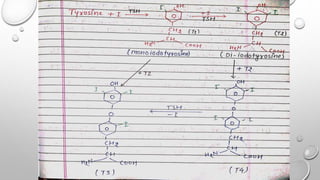 Tyrosine + I TSH → I OH (T1) +I TSH → I OH I (T2)
CH₂
CH
H₂N COOH
(monoiodotyrosine) (Di-iodotyrosine)
+T2 +T2
OH OH
I I I I
O TSH O
-I
I I I
CH₂ CH₂
CH CH
H₂N COOH H₂N COOH
(T3) (T4)